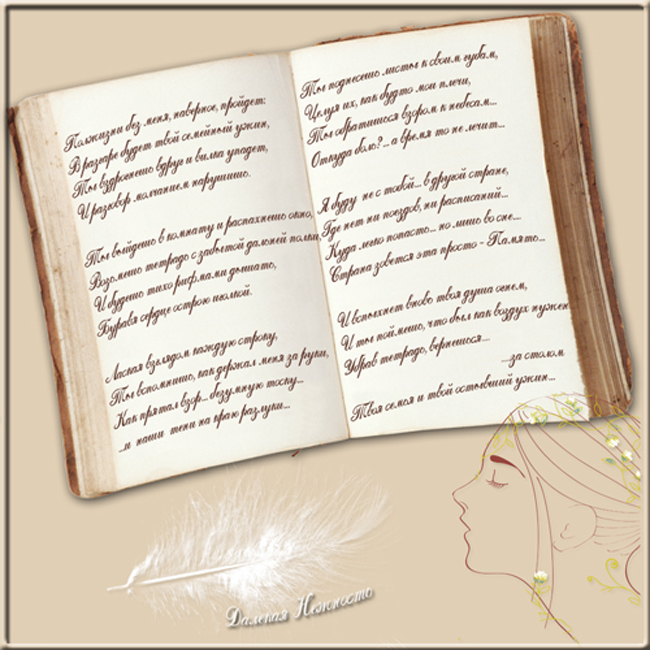 Полжизни без меня, наверное, пройдет:
В разгаре будет твой семейный ужин,
Ты вздрогнешь вдруг и вилка упадет,
И разговор молчанием нарушишь.
Ты выйдешь в комнату и распахнешь окно,
Возьмешь тетрадь с забытой дальней полки,
И будешь тихо рифмами дышать,
Буравя сердце острою иголкой.
Лаская взглядом каждую строку,
Ты вспомнишь, как держал меня за руки,
Как прятал взор... безумную тоску...
...и наши тени на краю разлуки...
Ты поднесешь листы к своим губам,
Целуя их, как будто мои плечи,
Ты обратишься взором к небесам...
Откуда боль?... а время то не лечит...
Я буду не с тобой... в другой стране,
Где нет ни поездов, ни расписаний...
Куда легко попасть... но лишь во сне...
Страна зовется эта просто - Память...
И вспыхнет вновь твоя душа огнем,
И ты поймешь, что был как воздух нужен
Убрав тетрадь, вернешься...
...за столом
Твоя семья и твой остывший ужин...
Далекая Нежность